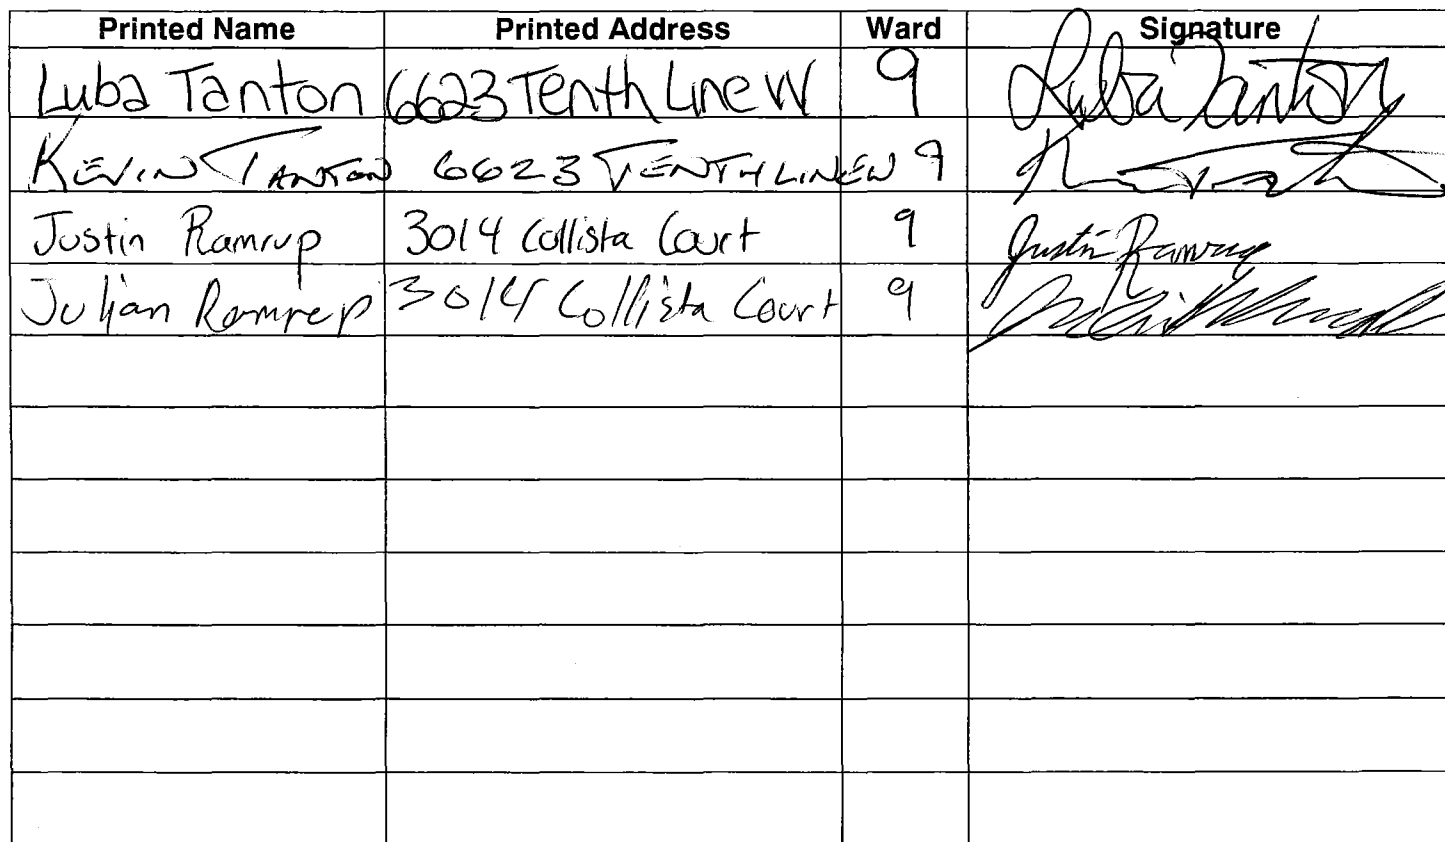 Printed Name Printed Address Ward Signature
Luba Tanton 6623 Tenth Line W 9 Luba Tanton
KEVIN TANTON 6623 TENTH LINE W 9
Justin Ramrup 3014 Collista Court 9 Justin Ramrup
Julian Ramrup 3014 Collista Court 9